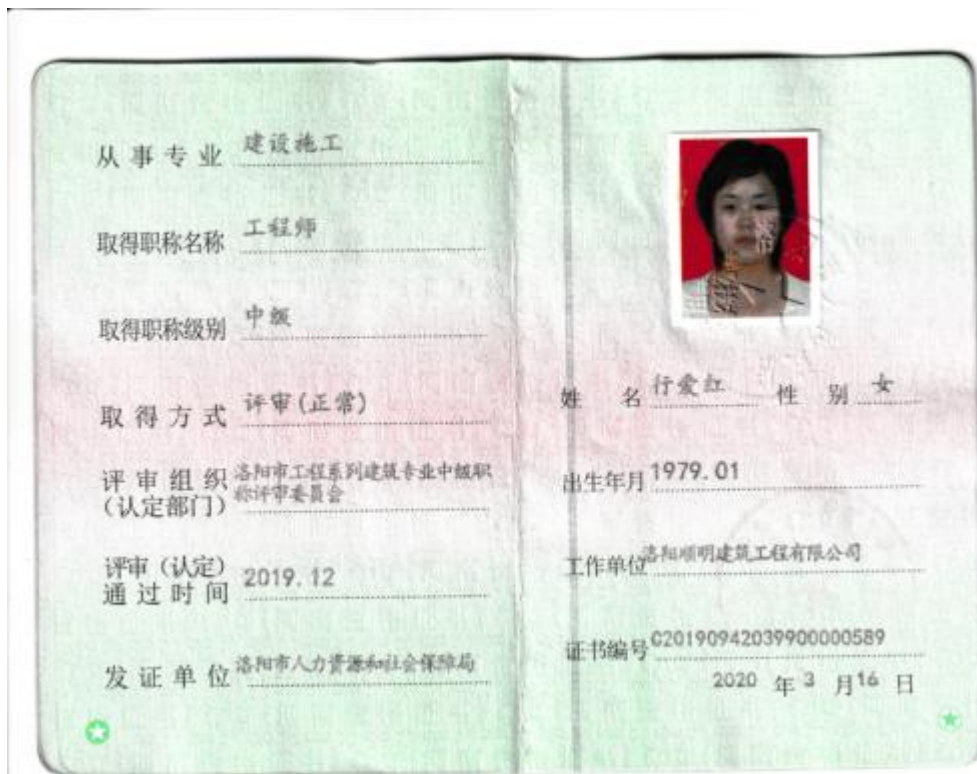 从事专业 建设施工
取得职称名称 工程师
取得职称级别 中级
取得方式 评审(正常)
评审组织 洛阳市工程系列建筑专业中级职
(认定部门) 称评审委员会
评审(认定)
通过时间 2019.12
发证单位 洛阳市人力资源和社会保障局
姓名 行爱红 性别 女
出生年月 1979.01
工作单位 洛阳顺明建筑工程有限公司
证书编号 C20190942039900000589
2020 年 3 月 16 日